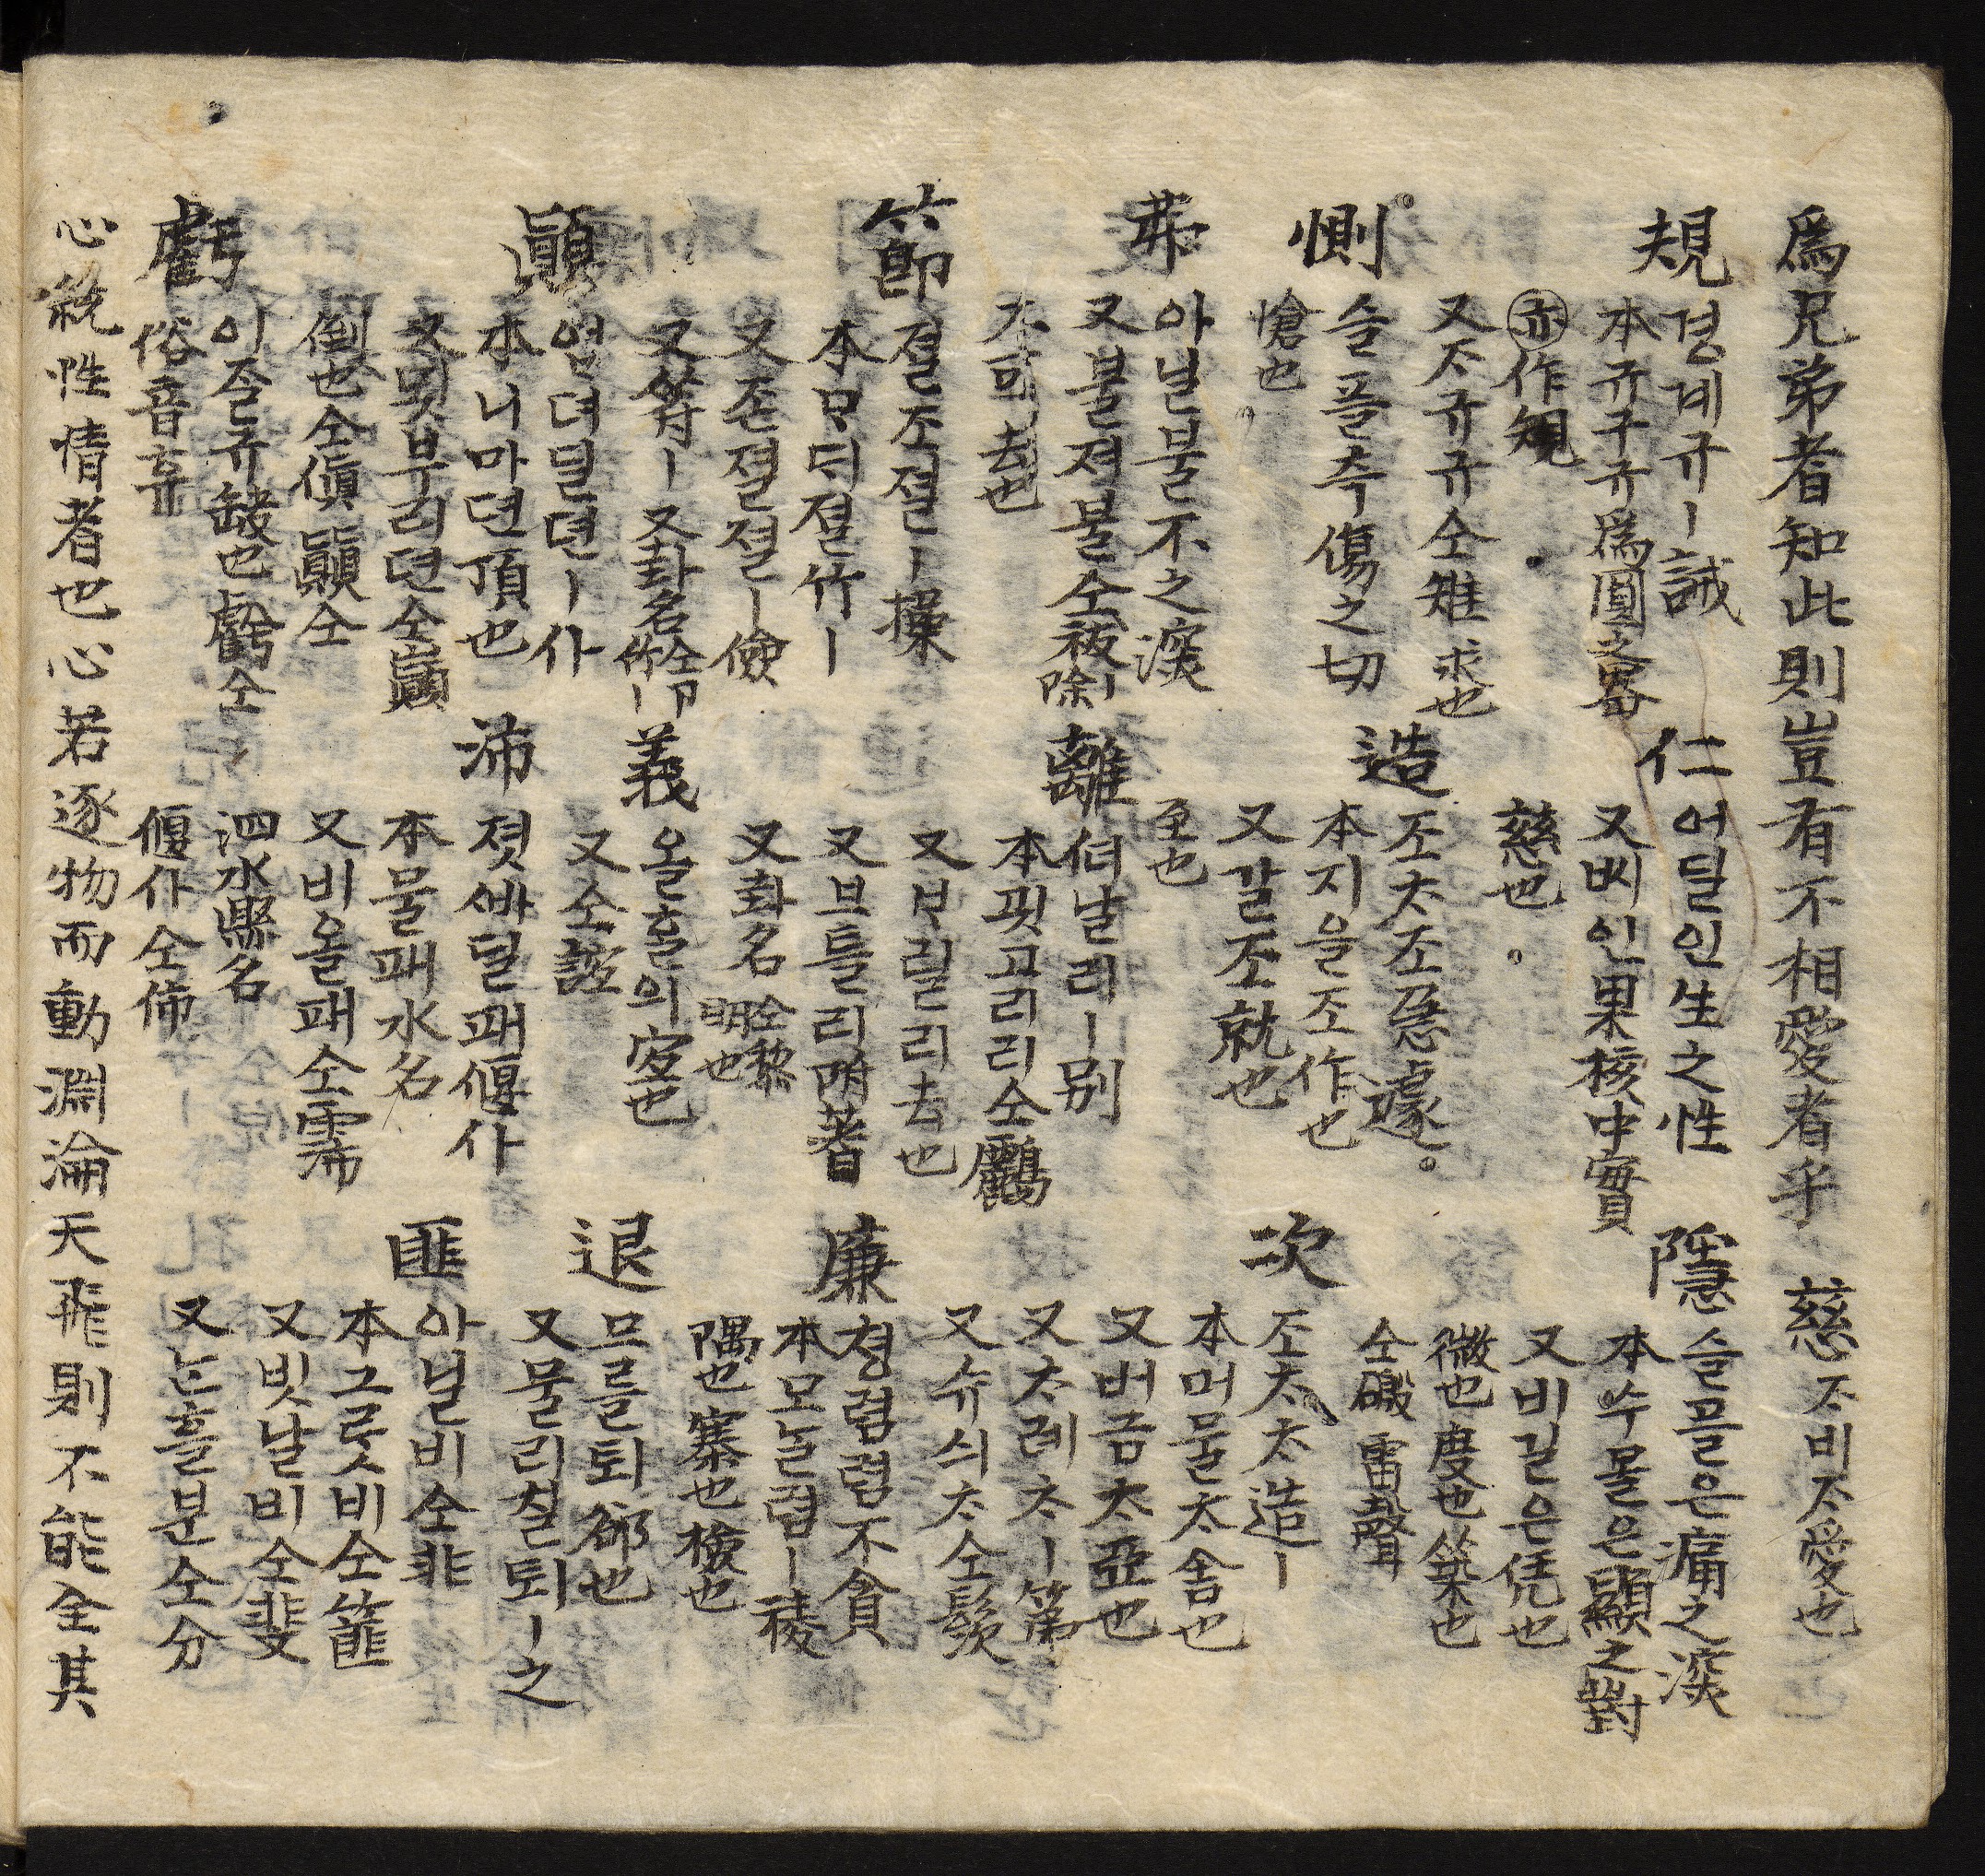 爲兄弟者知此則豈有不相愛者乎 慈 ᄌᆞ비ᄌᆞ愛也
規 경계규ㅣ誡
本규구규爲圓之器
亦作䂓
又ᄌᆞ규규仝雉 求也
仁 어딜인生之性
又ᄡᅵ인果核中實
慈也
隱 슬플은痛之深
本수믈은顯之對
又비길은凭也
微也度也築也
仝磤 雷聲
惻 슬플측傷之切
愴也
造 조ᄎᆞ조急遽
本지을조作也
又갈조就也
至也
次 조ᄎᆞᄎᆞ造ㅣ
本머물ᄎᆞ舍也
又버금ᄎᆞ亞也
又ᄎᆞ례ᄎᆞㅣ第
又슈식ᄎᆞ仝髮
弗 아닐불不之深
又불져불仝祓ㅣ除
不可也 去也
離 ᄯᅥ날리ㅣ別
本굇고리리仝鸝
又ᄇᆞ릴리去也
又브틀리附著
又卦名 仝黎明也
節 졀조졀ㅣ操
本ᄆᆞᄃᆡ졀竹ㅣ
又존졀졀ㅣ儉
又符ㅣ又卦名
義 올흘의宜也
又仝誼
廉 쳥렴렴不貪
本모늘렴ㅣ稜
隅也寡也檢也
退 므를퇴郤也
又물리칠퇴ㅣ之
顚 업더딜뎐ㅣ仆
本니마뎐頂也
又묏부리뎐仝巓
倒也仝傎 顚仝
沛 졋ᄲᅡ딜패偃仆
本물패水名
又비올패仝霈
泗水縣名
偃仆仝
匪 아닐비仝非
本그릇비仝篚
又빗날비仝斐
又ᄂᆞᆫ흘분仝分
虧 이즐규缺也虧仝
俗音휴
心統性情者也心若逐物而動淵淪天飛則不能全其